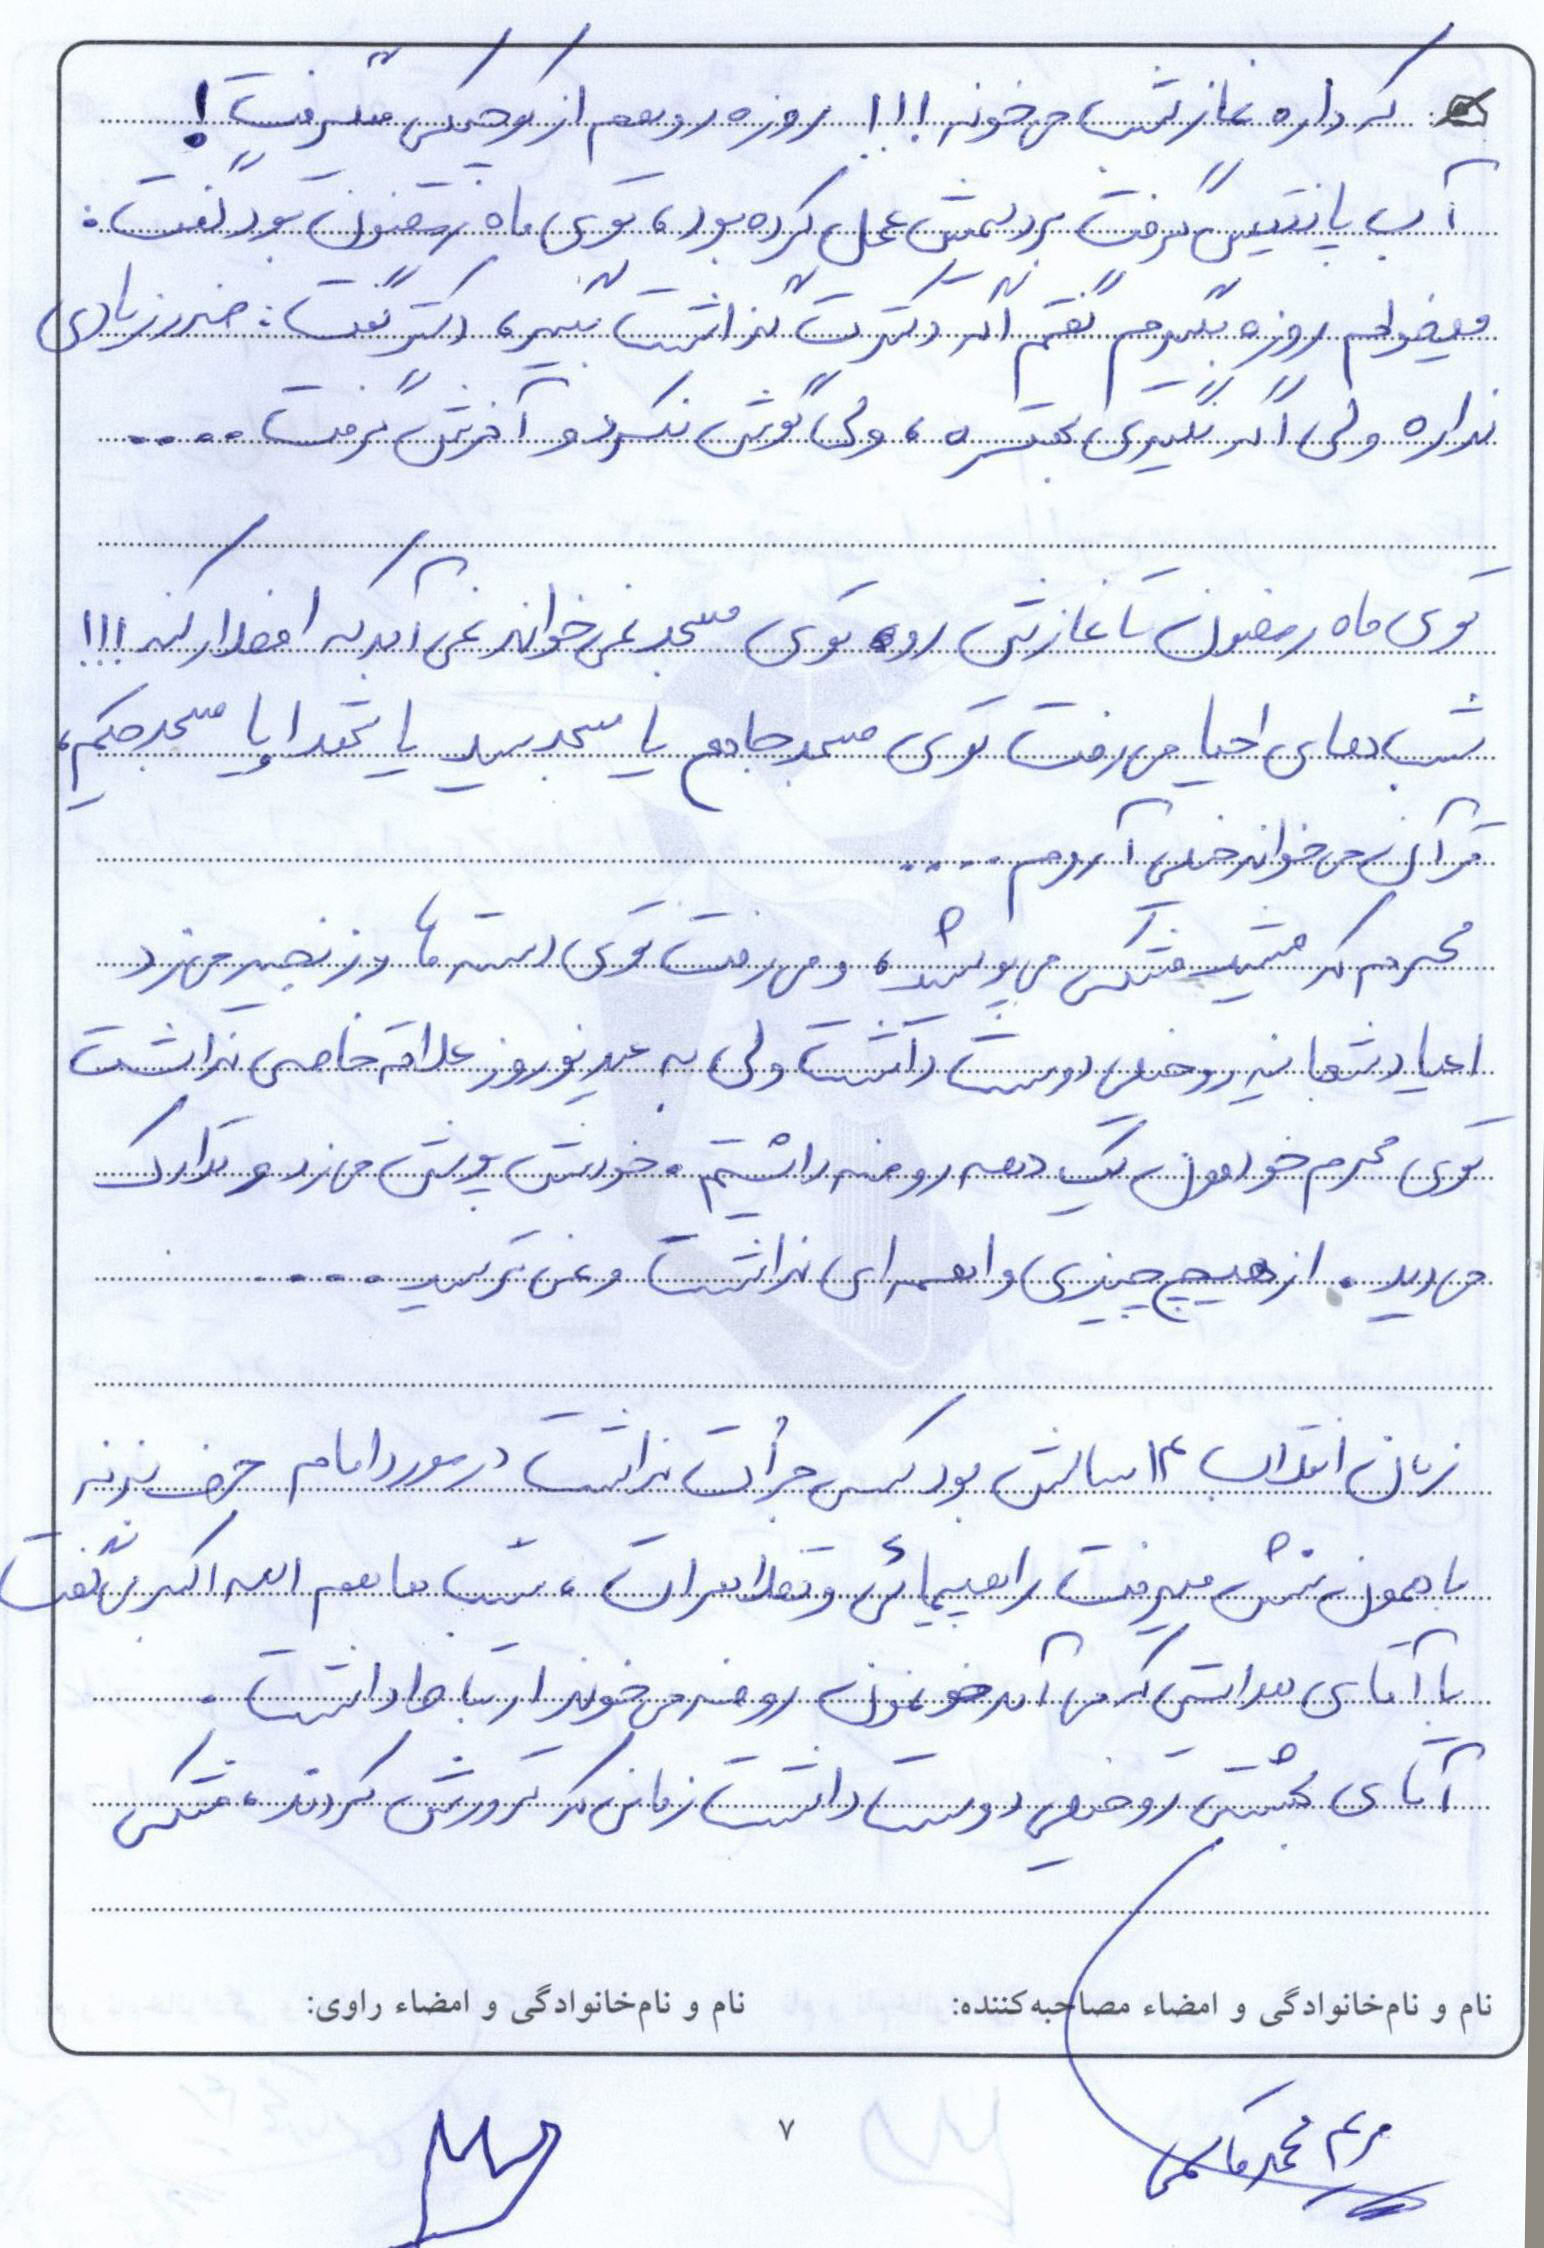 که داره نماز شب می خونه !!! روزه رو هم از کوچیکی میگیرفت !
آپاندتیس گرفت بردیمش عمل کرده بود، توی ماه رمضون بود گفت :
میخوام روزه بگیرم گفتم اگر دکترت گذاشت بگیر، دکتر گفت : ضرر زیادی
نداره ولی اگر نگیری بهتره ، ولی گوش نکرد و آخرش گرفت ....
توی ماه رمضون تا نمازش روه توی مسجد نمی خواند نمی آمد که افطار کنه !!!
شب های احیا می رفت توی مسجد جامع یا مسجد سید یا شهدا و یا مسجد حکیم،
قرآن می خواند خیلی آروم ....
محرم که میشد مشکی می پوشید، و می رفت توی دسته ها و زنجیر می زد
اعیاد شعبانیه رو خیلی دوست داشت ولی به عید نوروز علاقه خاصی نداشت
توی محرم خودمون یک دهه روضه داشتیم . خودش پوش می زد و تدارک
می دید . از هیچ چیزی واهمه ای نداشت و نمی ترسید ....
زمان انقلاب ۱۴ سالش بود کسی جرأت نداشت در مورد امام حرف بزنه
با همون سنش میرفت راهپیمائی و تظاهرات ، شب ها هم الله اکبر می گفت
با آقای هدایتی که می آمد خونمون روضه می خوند ارتباط داشت .
آقای بهشتی رو خیلی دوست داشت زمانی که ترورش کردند ، مشکی
نام و نام‌خانوادگی و امضاء مصاحبه‌کننده:
نام و نام‌خانوادگی و امضاء راوی:
مریم محمدقاسمی
۷